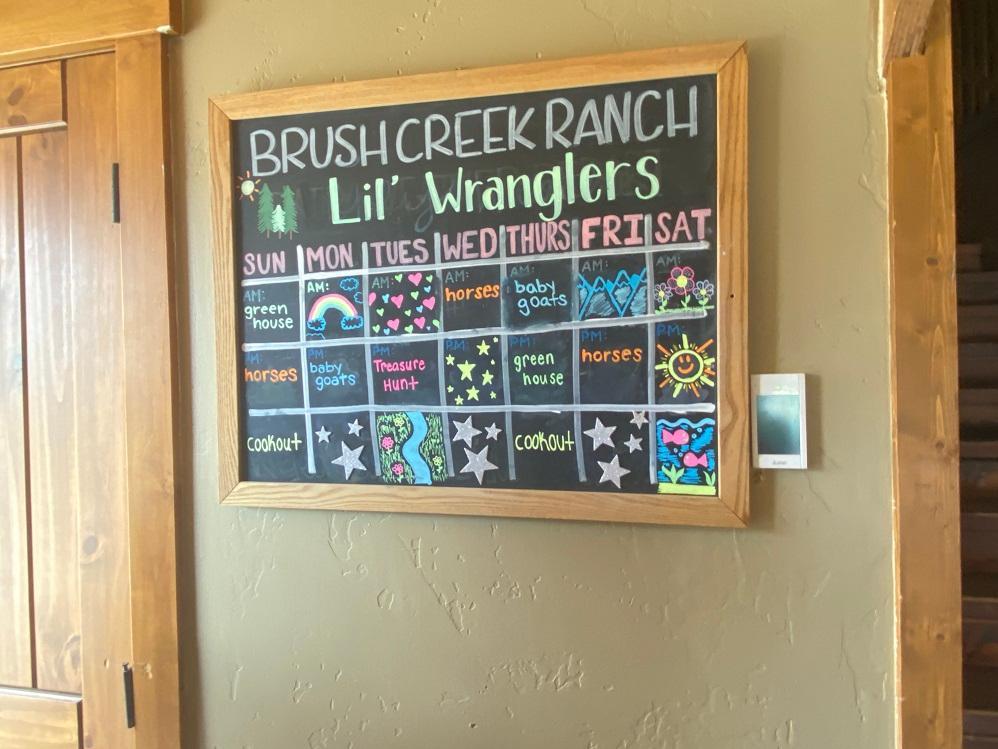 BRUSH CREEK RANCH
Lil' Wranglers
SUN MON TUES WED THURS FRI SAT
AM: green house
AM:
AM:
AM: horses
AM: baby goats
AM:
AM:
PM: horses
PM: baby goats
PM: Treasure Hunt
PM: green house
PM: horses
PM:
cookout
cookout